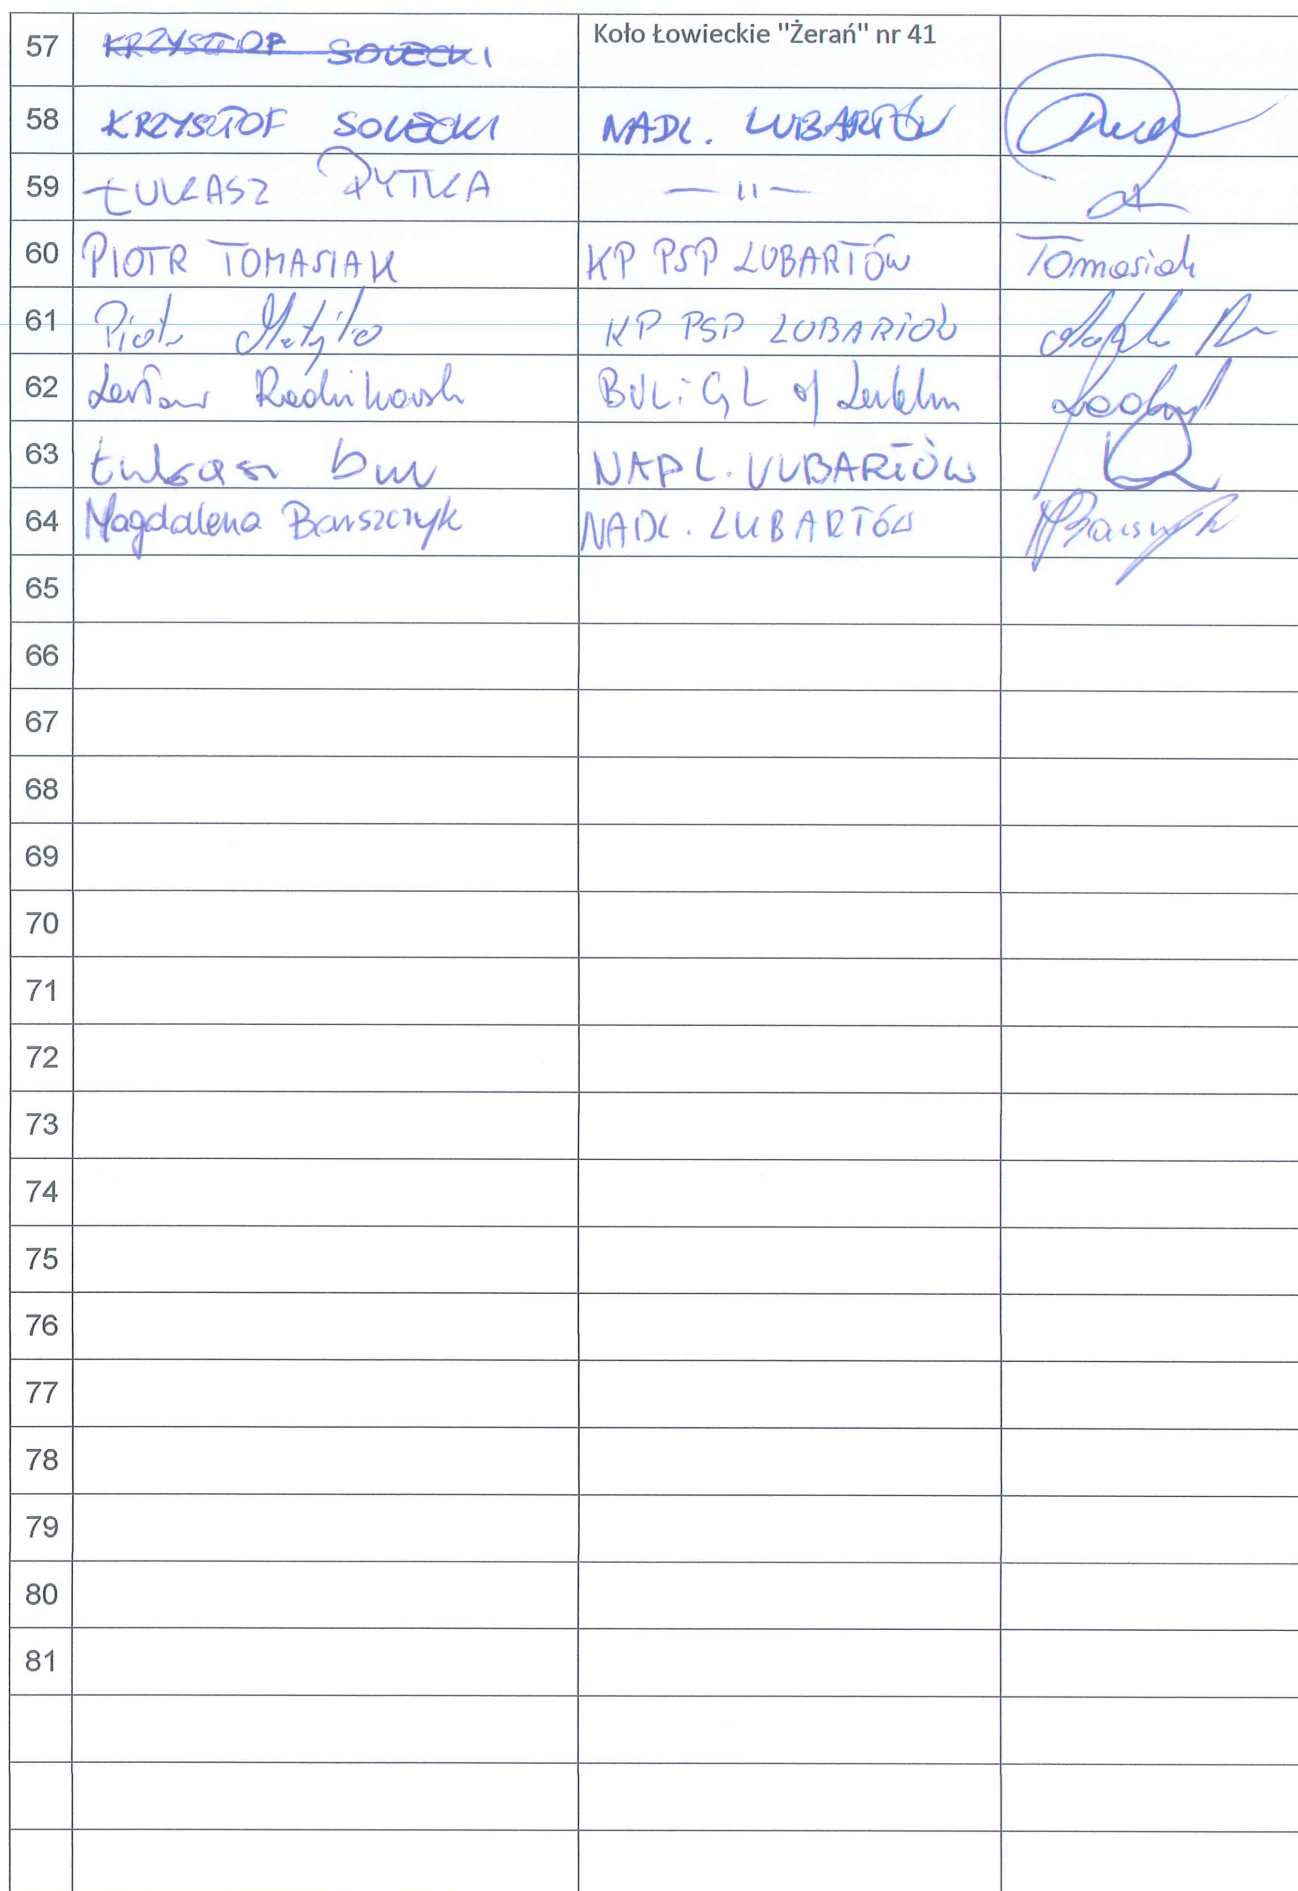 57 KRZYSZTOF SOLECKI Koło Łowieckie "Żerań" nr 41
58 KRZYSZTOF SOLECKI NADL. LUBARTÓW
59 ŁUKASZ PYTKA — 11 —
60 PIOTR TOMASIAK KP PSP LUBARTÓW Tomasiak
61 Piotr Matyjko KP PSP LUBARTÓW
62 BULiGL
63 Łukasz NADL. LUBARTÓW
64 Magdalena Barszczyk NADL. LUBARTÓW
65
66
67
68
69
70
71
72
73
74
75
76
77
78
79
80
81